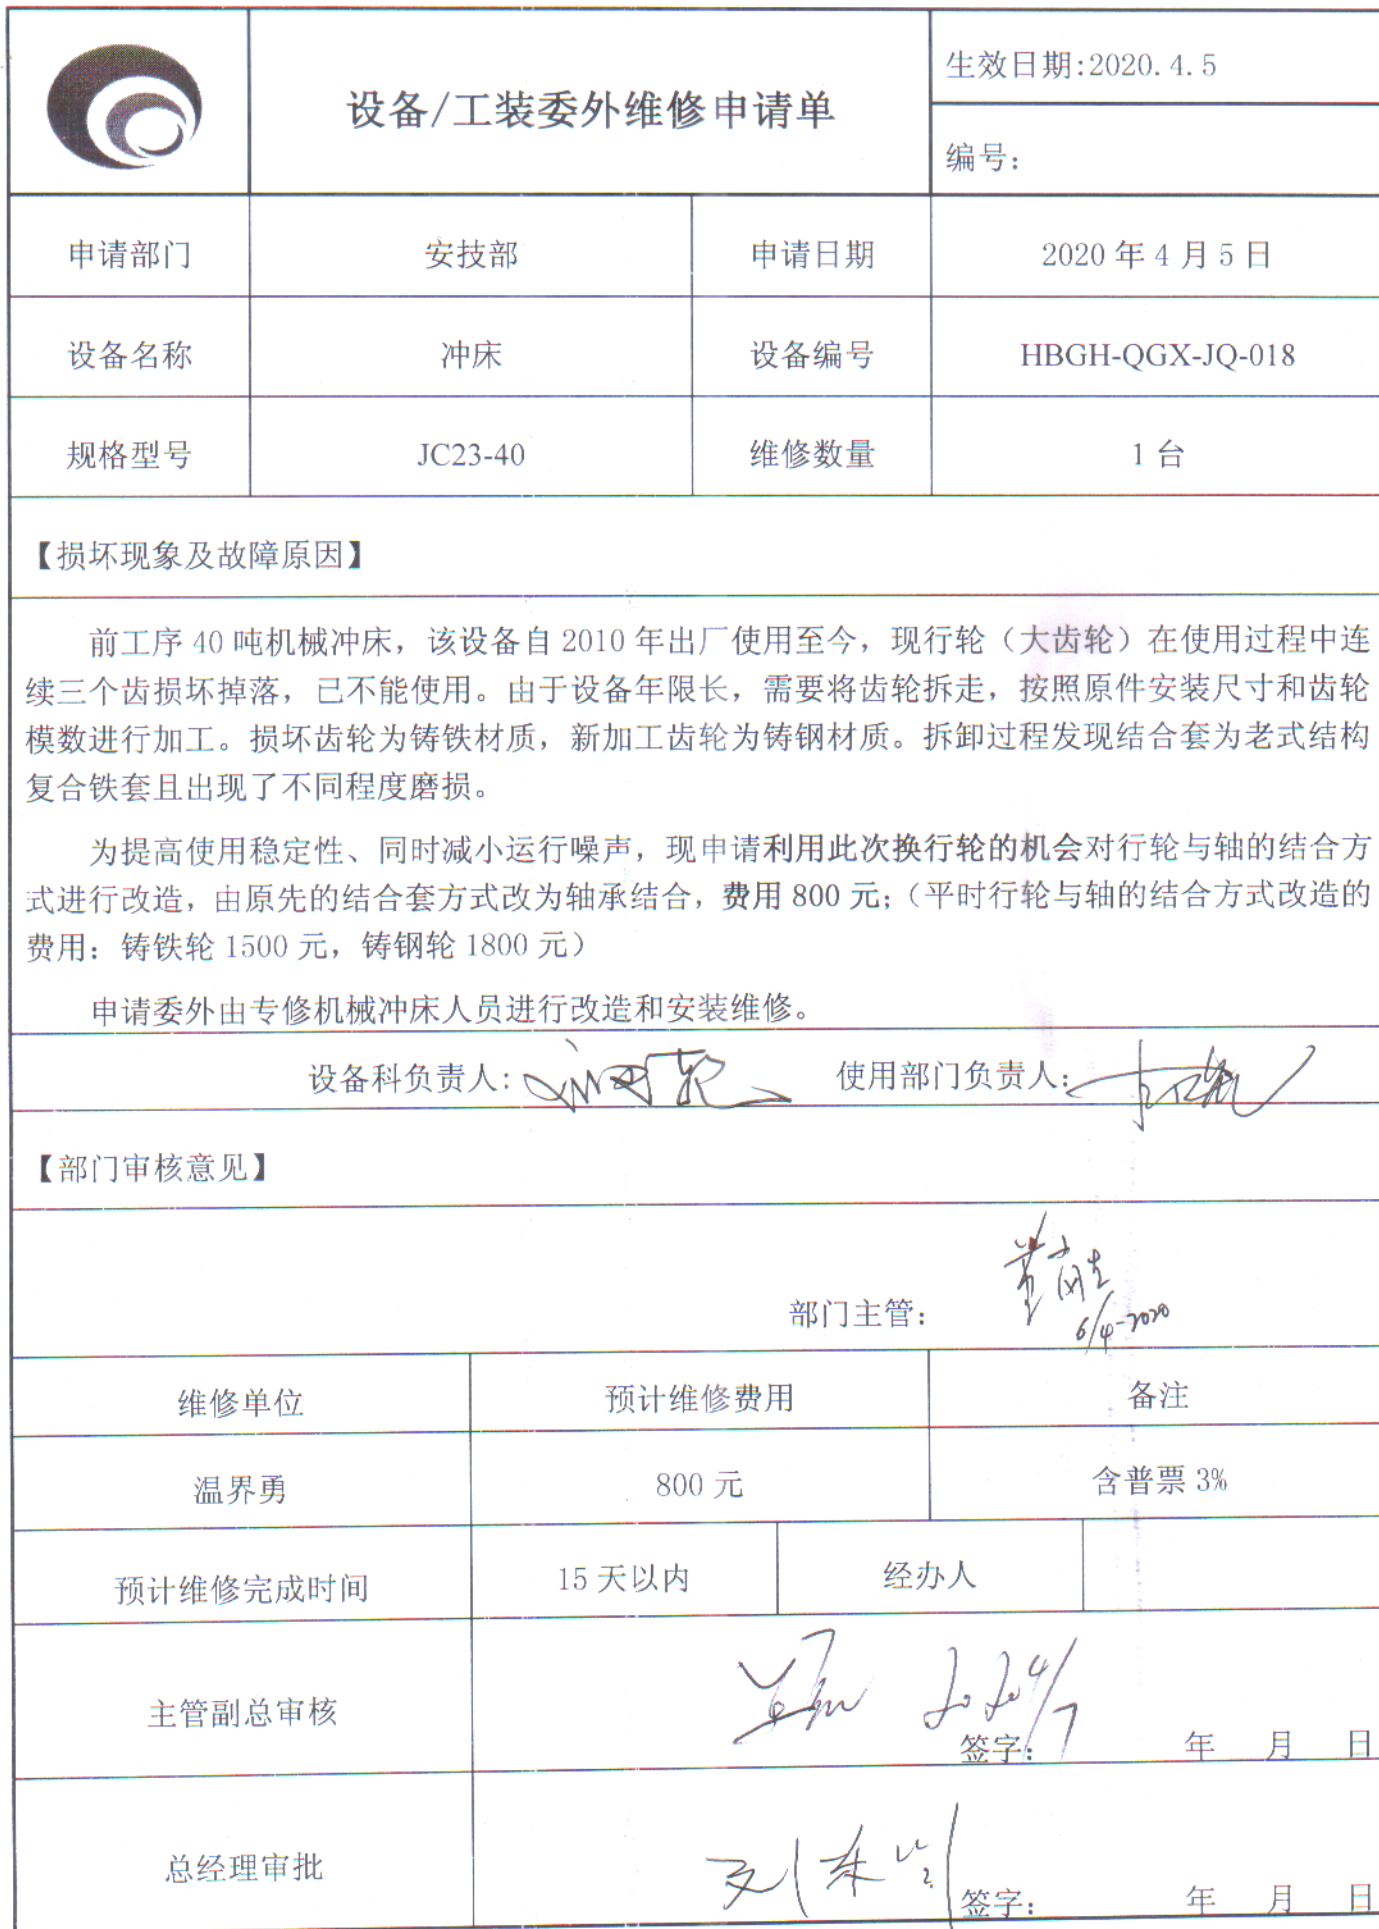 设备/工装委外维修申请单
生效日期:2020.4.5
编号:
申请部门 安技部 申请日期 2020 年 4 月 5 日
设备名称 冲床 设备编号 HBGH-QGX-JQ-018
规格型号 JC23-40 维修数量 1 台
【损坏现象及故障原因】
前工序 40 吨机械冲床，该设备自 2010 年出厂使用至今，现行轮（大齿轮）在使用过程中连
续三个齿损坏掉落，已不能使用。由于设备年限长，需要将齿轮拆走，按照原件安装尺寸和齿轮
模数进行加工。损坏齿轮为铸铁材质，新加工齿轮为铸钢材质。拆卸过程发现结合套为老式结构
复合铁套且出现了不同程度磨损。
为提高使用稳定性、同时减小运行噪声，现申请利用此次换行轮的机会对行轮与轴的结合方
式进行改造，由原先的结合套方式改为轴承结合，费用 800 元；（平时行轮与轴的结合方式改造的
费用：铸铁轮 1500 元，铸钢轮 1800 元）
申请委外由专修机械冲床人员进行改造和安装维修。
设备科负责人: 使用部门负责人:
【部门审核意见】
部门主管:
6/4-2020
维修单位 预计维修费用 备注
温界勇 800 元 含普票 3%
预计维修完成时间 15 天以内 经办人
主管副总审核 2020 4/7 签字: 年 月 日
总经理审批 签字: 年 月 日